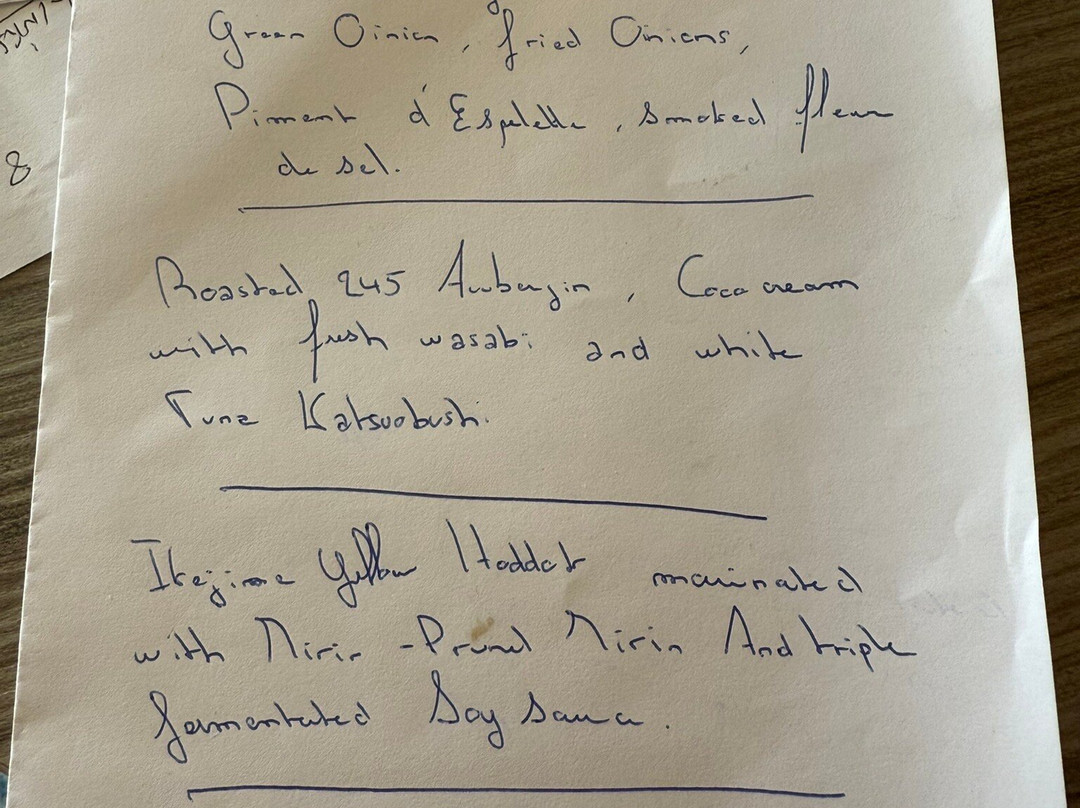 Green Oinion, fried Onions,
Piment d'Espelette, smoked fleur
de sel.
Roasted 245 Aubergin, Coco cream
with fresh wasabi and white
Tuna Katsuobushi.
Ikejime Yellow Haddock marinated
with Mirin - Mirin And triple
fermentated Soy sauce.
8